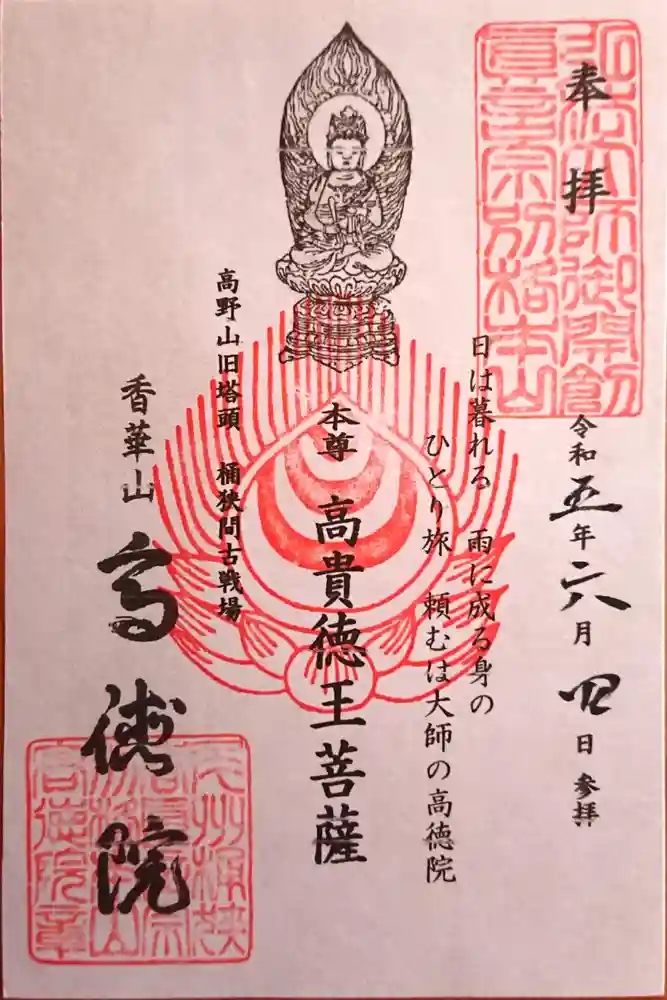 奉拝
弘法大師御開創
真言宗別格本山
令和五年六月四日参拝
日は暮れる 雨に成る身の
ひとり旅 頼むは大師の高徳院
本尊 高貴徳王菩薩
高野山旧塔頭 桶狭間古戦場
香華山
高徳院
高徳院章